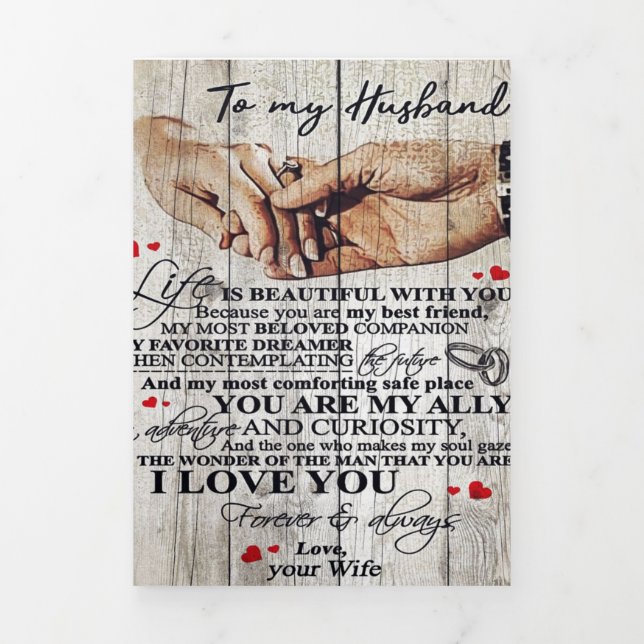 To my Husband
Life IS BEAUTIFUL WITH YOU
Because you are my best friend,
MY MOST BELOVED COMPANION
Y FAVORITE DREAMER
HEN CONTEMPLATING the future
And my most comforting safe place
YOU ARE MY ALLY
adventure AND CURIOSITY,
And the one who makes my soul gaze
THE WONDER OF THE MAN THAT YOU ARE
I LOVE YOU
Forever & always,
Love,
your Wife